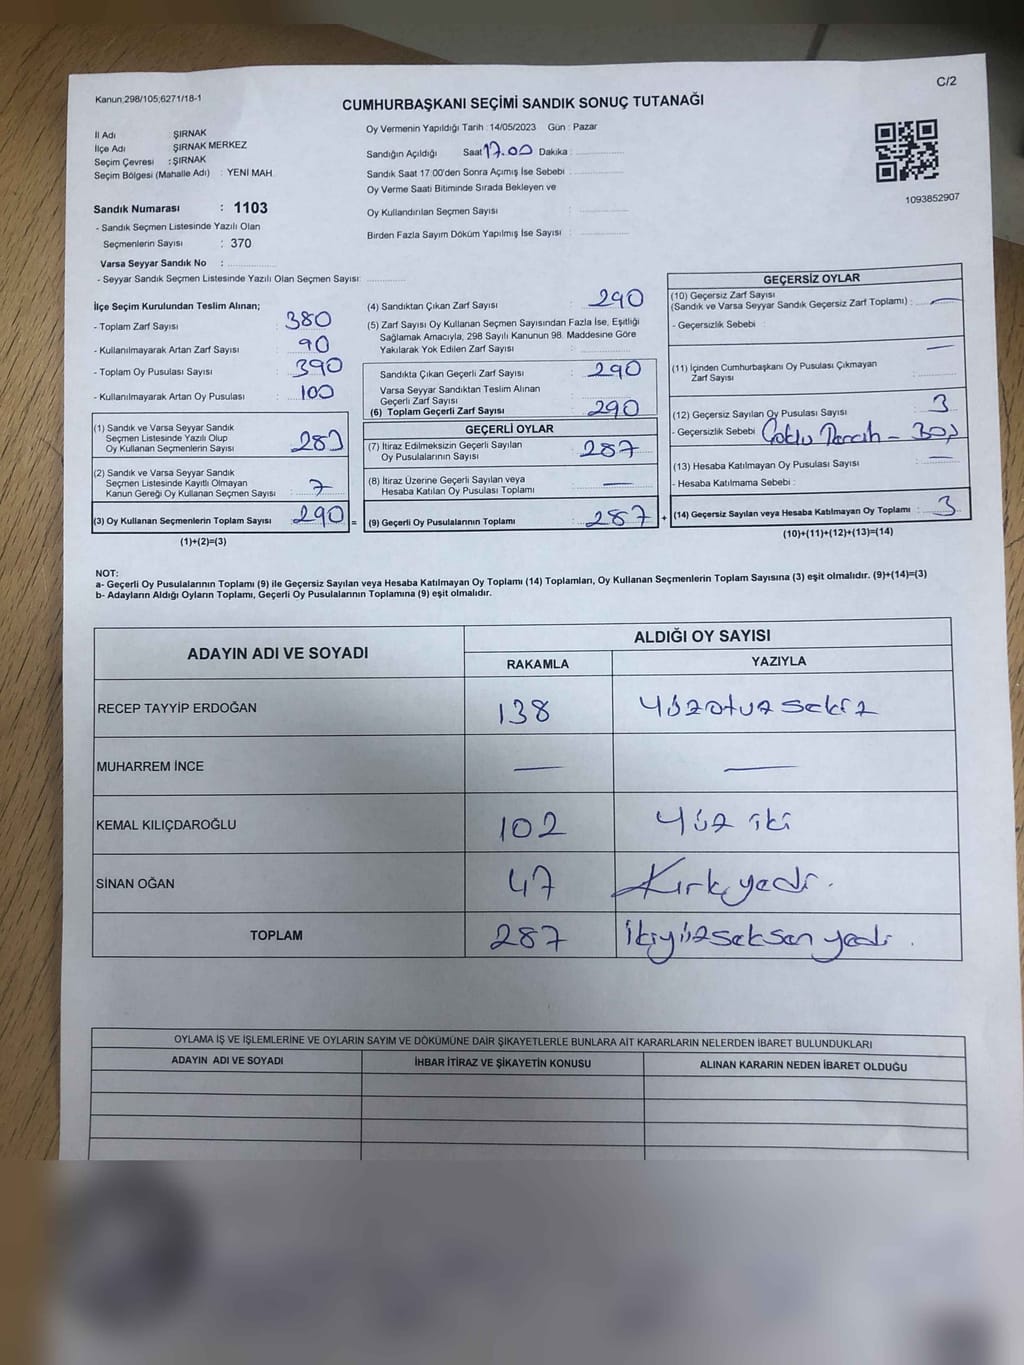 C/2
Kanun:298/105;6271/18-1
CUMHURBAŞKANI SEÇİMİ SANDIK SONUÇ TUTANAĞI
İl Adı ŞIRNAK
İlçe Adı ŞIRNAK MERKEZ
Seçim Çevresi : ŞIRNAK
Seçim Bölgesi (Mahalle Adı) : YENİ MAH.
Sandık Numarası : 1103
- Sandık Seçmen Listesinde Yazılı Olan
Seçmenlerin Sayısı : 370
Varsa Seyyar Sandık No :
- Seyyar Sandık Seçmen Listesinde Yazılı Olan Seçmen Sayısı:
Oy Vermenin Yapıldığı Tarih : 14/05/2023 Gün : Pazar
Sandığın Açıldığı Saat 17.00 Dakika :
Sandık Saat 17:00'den Sonra Açımış İse Sebebi :
Oy Verme Saati Bitiminde Sırada Bekleyen ve
Oy Kullandırılan Seçmen Sayısı :
Birden Fazla Sayım Döküm Yapılmış İse Sayısı :
1093852907
İlçe Seçim Kurulundan Teslim Alınan;
- Toplam Zarf Sayısı : 380
- Kullanılmayarak Artan Zarf Sayısı : 90
- Toplam Oy Pusulası Sayısı : 390
- Kullanılmayarak Artan Oy Pusulası : 100
(1) Sandık ve Varsa Seyyar Sandık
Seçmen Listesinde Yazılı Olup
Oy Kullanan Seçmenlerin Sayısı : 283
(2) Sandık ve Varsa Seyyar Sandık
Seçmen Listesinde Kayıtlı Olmayan
Kanun Gereği Oy Kullanan Seçmen Sayısı : 7
(3) Oy Kullanan Seçmenlerin Toplam Sayısı : 290 =
(1)+(2)=(3)
(4) Sandıktan Çıkan Zarf Sayısı : 290
(5) Zarf Sayısı Oy Kullanan Seçmen Sayısından Fazla İse, Eşitliği
Sağlamak Amacıyla, 298 Sayılı Kanunun 98. Maddesine Göre
Yakılarak Yok Edilen Zarf Sayısı :
Sandıkta Çıkan Geçerli Zarf Sayısı : 290
Varsa Seyyar Sandıktan Teslim Alınan
Geçerli Zarf Sayısı :
(6) Toplam Geçerli Zarf Sayısı : 290
GEÇERLİ OYLAR
(7) İtiraz Edilmeksizin Geçerli Sayılan
Oy Pusulalarının Sayısı : 287
(8) İtiraz Üzerine Geçerli Sayılan veya
Hesaba Katılan Oy Pusulası Toplamı : —
(9) Geçerli Oy Pusulalarının Toplamı : 287 +
GEÇERSİZ OYLAR
(10) Geçersiz Zarf Sayısı
(Sandık ve Varsa Seyyar Sandık Geçersiz Zarf Toplamı) : —
- Geçersizlik Sebebi :
(11) İçinden Cumhurbaşkanı Oy Pusulası Çıkmayan —
Zarf Sayısı :
(12) Geçersiz Sayılan Oy Pusulası Sayısı : 3
- Geçersizlik Sebebi Çoklu Tercih –
(13) Hesaba Katılmayan Oy Pusulası Sayısı : —
- Hesaba Katılmama Sebebi :
(14) Geçersiz Sayılan veya Hesaba Katılmayan Oy Toplamı : 3
(10)+(11)+(12)+(13)=(14)
NOT:
a- Geçerli Oy Pusulalarının Toplamı (9) ile Geçersiz Sayılan veya Hesaba Katılmayan Oy Toplamı (14) Toplamları, Oy Kullanan Seçmenlerin Toplam Sayısına (3) eşit olmalıdır. (9)+(14)=(3)
b- Adayların Aldığı Oyların Toplamı, Geçerli Oy Pusulalarının Toplamına (9) eşit olmalıdır.
ADAYIN ADI VE SOYADI ALDIĞI OY SAYISI
RAKAMLA YAZIYLA
RECEP TAYYİP ERDOĞAN 138 Yüzotuz sekiz
MUHARREM İNCE — —
KEMAL KILIÇDAROĞLU 102 Yüz iki
SİNAN OĞAN 47 Kırk yedi.
TOPLAM 287 İkiyüzseksen yedi.
OYLAMA İŞ VE İŞLEMLERİNE VE OYLARIN SAYIM VE DÖKÜMÜNE DAİR ŞİKAYETLERLE BUNLARA AİT KARARLARIN NELERDEN İBARET BULUNDUKLARI
ADAYIN ADI VE SOYADI İHBAR İTİRAZ VE ŞİKAYETİN KONUSU ALINAN KARARIN NEDEN İBARET OLDUĞU